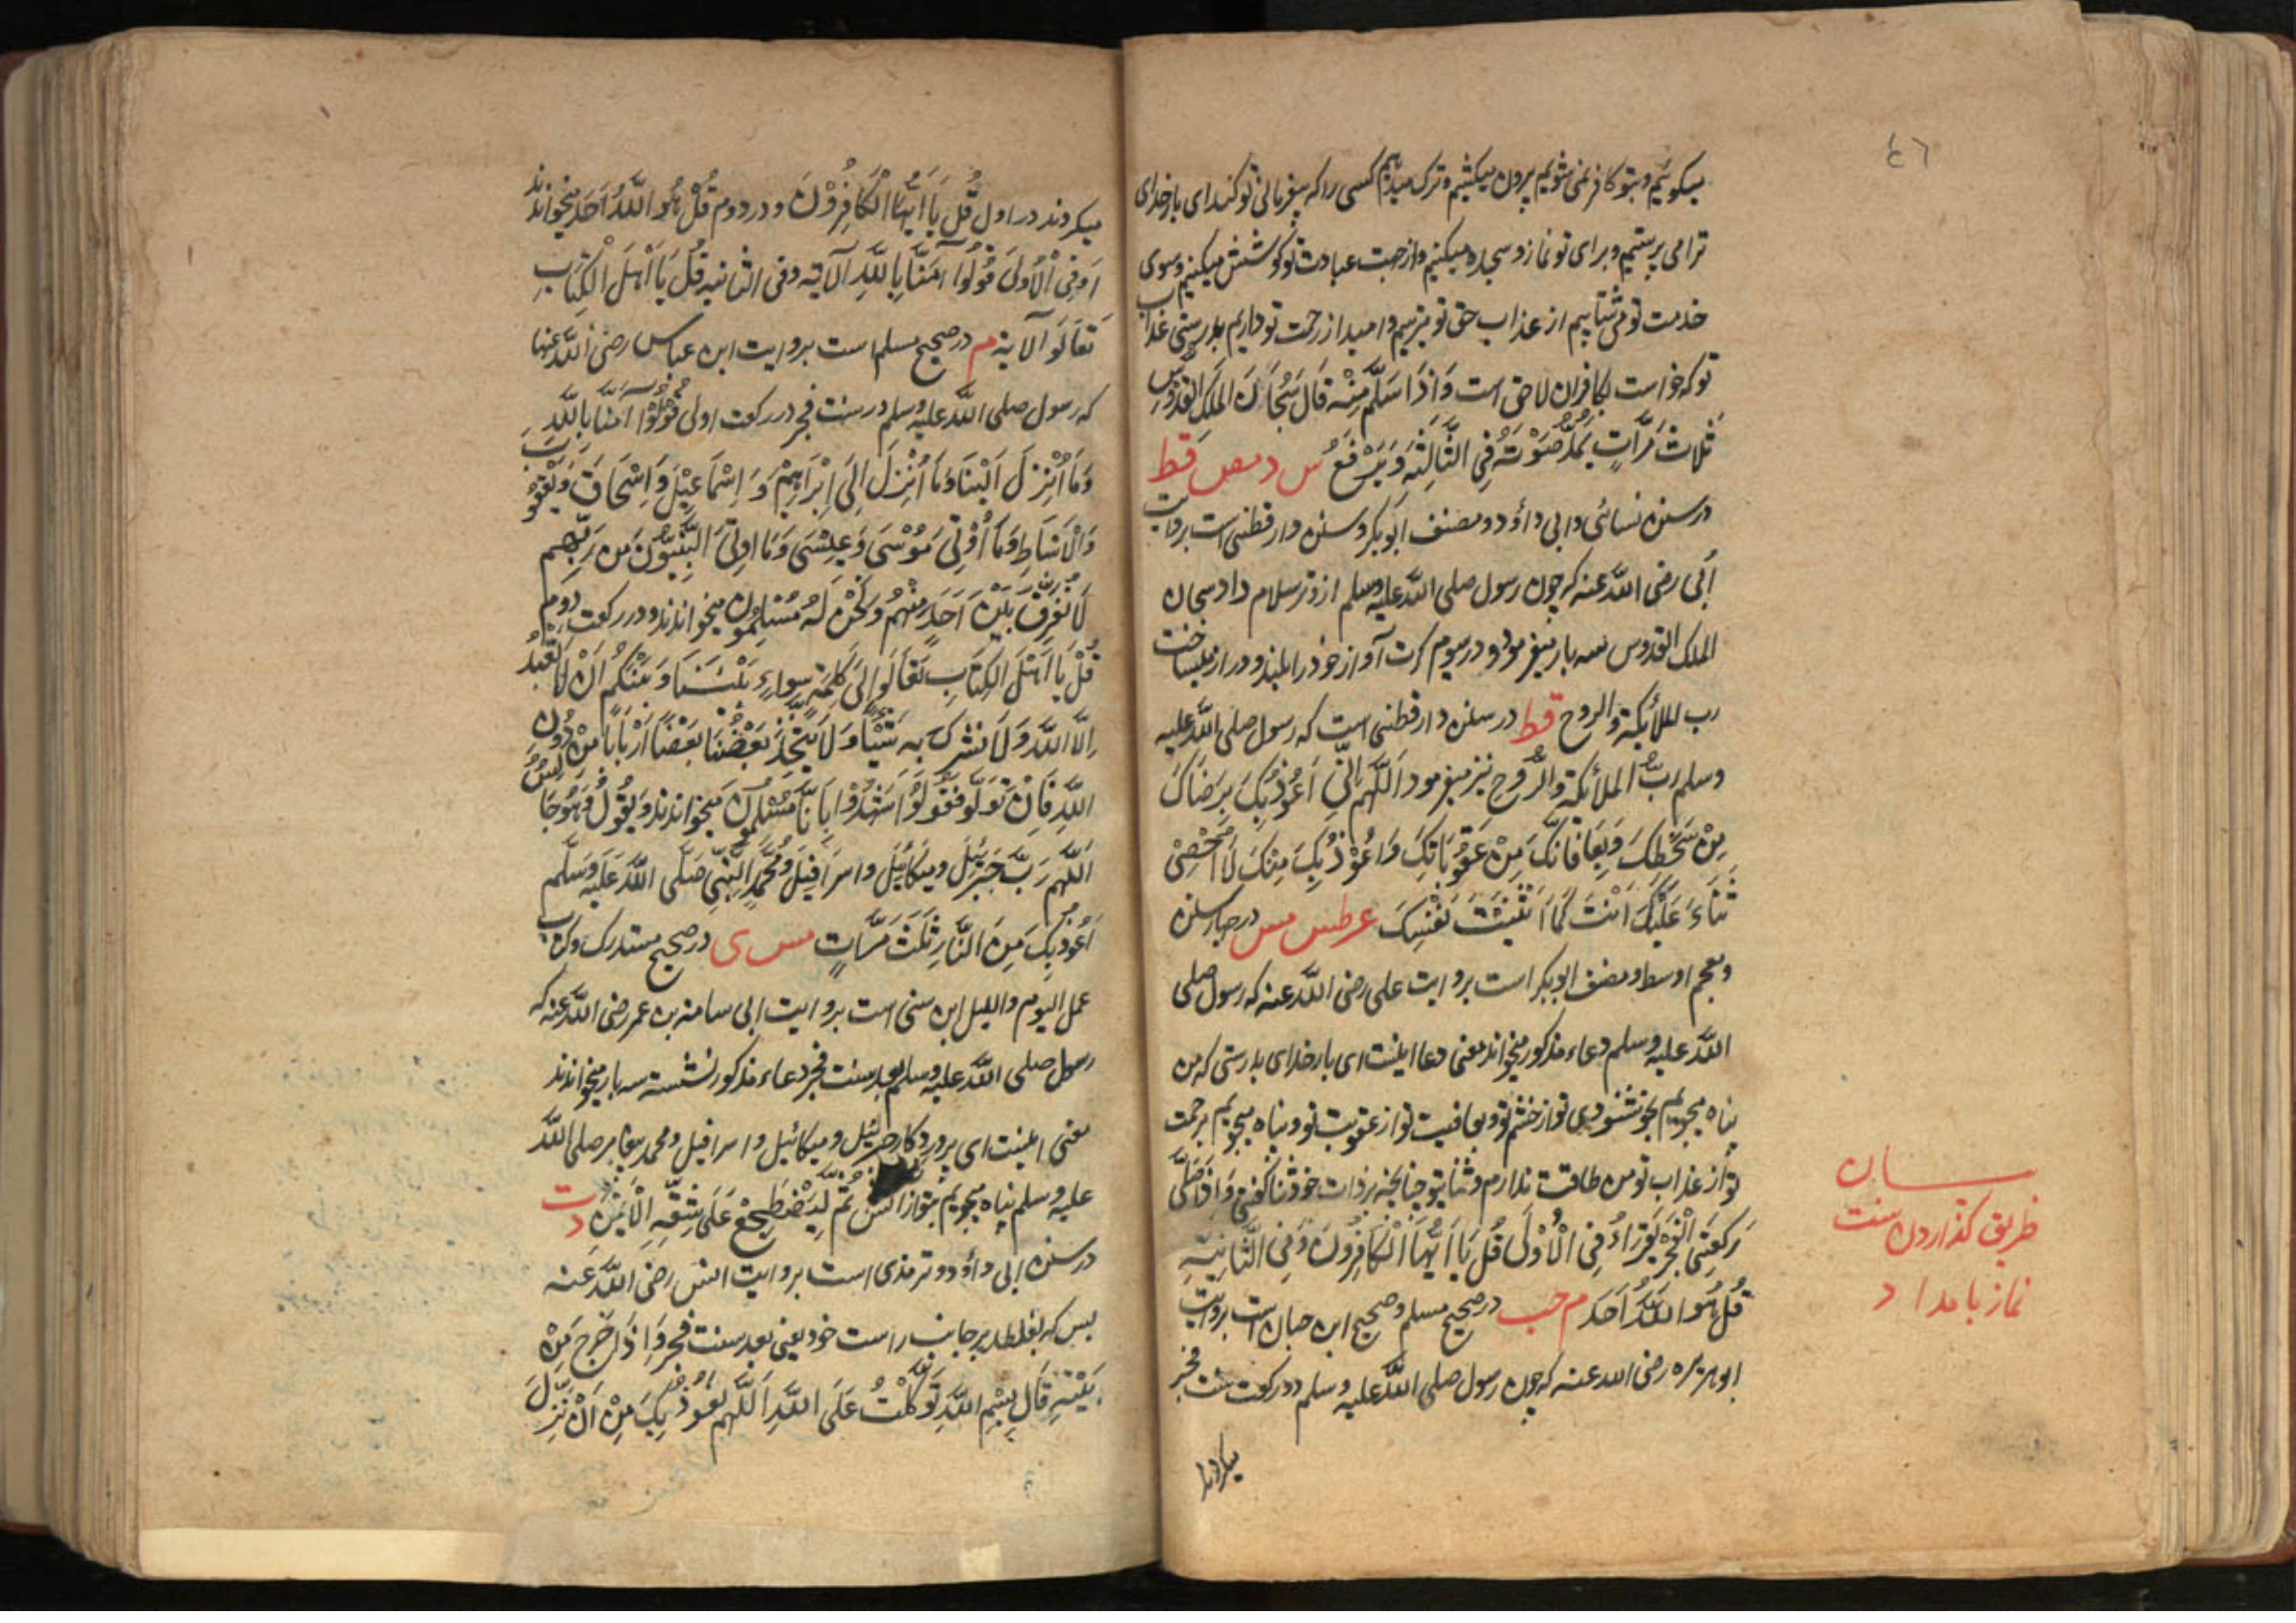 ٤٦
میکوئیم و بتو کافر نمی شویم بیرون میکشیم و ترک میدهیم کسی را که بیفرمانی تو کند ای بار خدای
ترا می پرستیم و برای تو نماز و سجده میکنیم و از جهت عبادت تو کوشش میکنیم و سوی
خدمت تو می شتابیم از عذاب حق تو میترسیم و امید از رحمت تو داریم بدرستی عذاب
تو که خواست بکافران لاحق است وَاِذَا سَلَّمَ مِنْهُ قَالَ سُبْحَانَ الْمَلِكِ الْقُدُّوْسِ
ثَلَاثَ مَرَّاتٍ يَمُدُّ صَوْتَهُ فِي الثَّالِثَةِ وَيَرْفَعُ س د مص قط
در سنن نسائی و ابی داؤد و مصنف ابوبکر و سنن دارقطنی است بروایت
اُبَی رضی اللّه عنه که چون رسول صلی اللّه علیه وسلم از وتر سلام داد سبحان
الملک القدوس سه بار میفرمود و در سیوم کرت آواز خود را بلند و دراز میساخت
رب الملائکة والروح قط در سنن دارقطنی است که رسول صلی اللّه علیه
وسلم ربُّ الملائکة والرُّوح نیز میفرمود اَللّٰهُمَّ اِنِّي اَعُوْذُ بِكَ بِرَضَاكَ
مِنْ سَخَطِكَ وَبِمُعَافَاتِكَ مِنْ عُقُوْبَاتِكَ وَاَعُوْذُ بِكَ مِنْكَ لَا اُحْصِيْ
ثَنَاءً عَلَيْكَ اَنْتَ كَمَا اَثْنَيْتَ نَفْسِكَ عه طس مس در چهار سنن
و معجم اوسط و مصنف ابوبکر است بروایت علی رضی اللّه عنه که رسول صلی
اللّه علیه وسلم دعاء مذکور میخواند معنی دعا اینست ای بار خدای بدرستی که من
پناه میجویم بخوشنودی تو از خشم تو و بعافیت تو از عقوبت تو و پناه میجویم برحمت
تو از عذاب تو من طاقت ندارم و ثنا بتو چنانچه بر ذات خود ثنا گفتی وَاِذَا صَلَّى
رَكْعَتَيِ الْفَجْرِ يَقْرَاُ فِي الْاُوْلَى قُلْ يَا اَيُّهَا الْكَافِرُوْنَ وَفِي الثَّانِيَةِ
قُلْ هُوَ اللّٰهُ اَحَد م حب در صحیح مسلم و صحیح ابن حبان است بروایت
ابو هریره رضی الله عنه که چون رسول صلی اللّه علیه وسلم دو رکعت سنت فجر
میکردند
بیان
طریق کذاردن سنت
نماز بامداد
میکردند در اول قُلْ يَا اَيُّهَا الْكَافِرُوْنَ و در دوم قُلْ هُوَ اللّٰهُ اَحَد میخواندند
اَوْ فِي الْاُوْلَى قُوْلُوْا اٰمَنَّا بِاللّٰهِ الآیة وفی الثانیه قُلْ يَا اَهْلَ الْكِتَابِ
تَعَالَوْا الآیة م در صحیح مسلم است بروایت ابن عباس رضی اللّه عنهما
که رسول صلی اللّه علیه وسلم در سنت فجر در رکعت اولی قُوْلُوْا اٰمَنَّا بِاللّٰهِ
وَمَا اُنْزِلَ اِلَيْنَا وَمَا اُنْزِلَ اِلَى اِبْرَاهِيْمَ وَاِسْمَاعِيْلَ وَاِسْحَاقَ وَيَعْقُوْبَ
وَالْاَسْبَاطِ وَمَا اُوْتِيَ مُوْسٰى وَعِيْسٰى وَمَا اُوْتِيَ النَّبِيُّوْنَ مِنْ رَبِّهِمْ
لَا نُفَرِّقُ بَيْنَ اَحَدٍ مِنْهُمْ وَنَحْنُ لَهُ مُسْلِمُوْنَ میخواندند و در رکعت دوم
قُلْ يَا اَهْلَ الْكِتَابِ تَعَالَوْا اِلٰى كَلِمَةٍ سَوَاءٍ بَيْنَنَا وَبَيْنَكُمْ اَنْ لَا نَعْبُدَ
اِلَّا اللّٰهَ وَلَا نُشْرِكَ بِهِ شَيْئًا وَلَا يَتَّخِذَ بَعْضُنَا بَعْضًا اَرْبَابًا مِنْ دُوْنِ
اللّٰهِ فَاِنْ تَوَلَّوْا فَقُوْلُوْا اشْهَدُوْا بِاَنَّا مُسْلِمُوْنَ میخواندند وَيَقُوْلُ وَهُوَ جَالِسٌ
اَللّٰهُمَّ رَبَّ جَبْرَئِيْلَ وَمِيْكَائِيْلَ وَاِسْرَافِيْلَ وَمُحَمَّدٍ النَّبِيِّ صَلَّى اللّٰهُ عَلَيْهِ وَسَلَّمَ
اَعُوْذُ بِكَ مِنَ النَّارِ ثَلٰثَ مَرَّاتٍ مس ی در صحیح مستدرک و کتاب
عمل الیوم واللیل ابن سنی است بروایت ابی سامنه بن عمر رضی اللّه عنه که
رسول صلی اللّه علیه وسلم بعد سنت فجر دعاء مذکور نشسته سه بار میخواندند
معنی اینست ای پروردکار جبرئیل و میکائیل و اسرافیل و محمد پیغامبر صلی اللّه
علیه وسلم پناه میجویم بتو از آتش ثُمَّ لِيَضْطَجِعْ عَلٰى شِقِّهِ الْاَيْمَنِ د ت
در سنن ابی داؤد و ترمذی است بروایت انس رضی اللّه عنه
پس که بغلطد بر جانب راست خود یعنی بعد سنت فجر وَاِذَا خَرَجَ مِنْ
بَيْتِهِ قَالَ بِسْمِ اللّٰهِ تَوَكَّلْتُ عَلَى اللّٰهِ اَللّٰهُمَّ نَعُوْذُ بِكَ مِنْ اَنْ نَزِلَّ